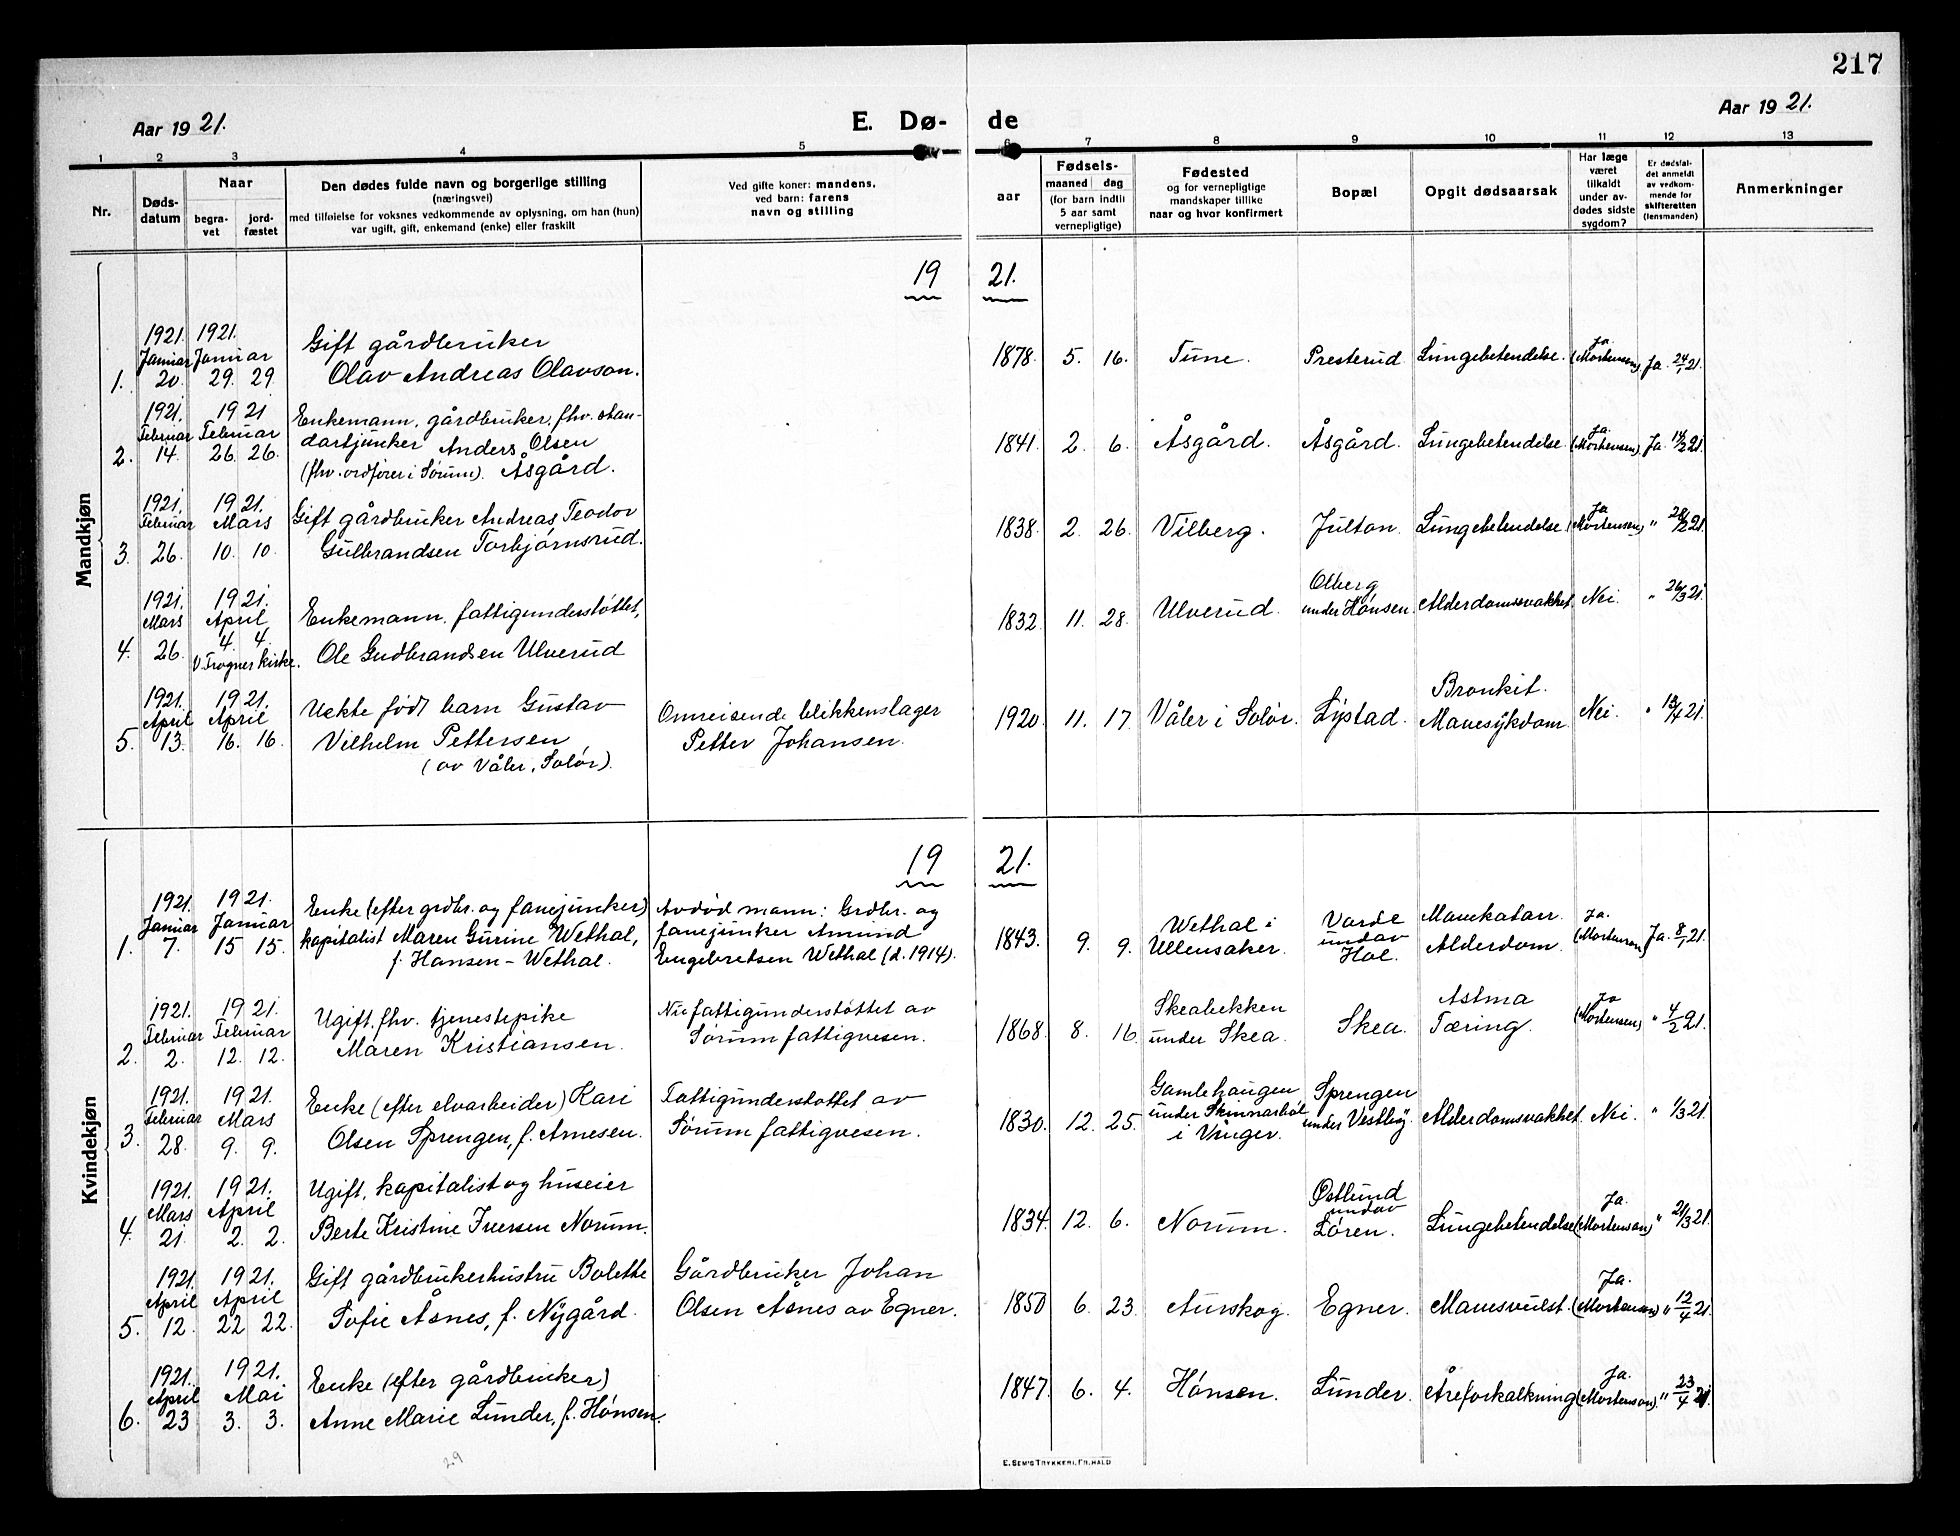 217
Aar 1921.
E. Dø-
de
Aar 1921.
1 2 3 4 5 6 7 8 9 10 11 12 13
Nr.
Døds-
datum
Naar
begra-
vet
jord-
fæstet
Den dødes fulde navn og borgerlige stilling
(næringsvei)
med tilføielse for voksnes vedkommende av oplysning, om han (hun)
var ugift, gift, enkemand (enke) eller fraskilt
Ved gifte koner: mandens,
ved barn: farens
navn og stilling
aar
Fødsels-
maaned dag
(for barn indtil
5 aar samt
vernepligtige)
Fødested
og for vernepligtige
mandskaper tillike
naar og hvor konfirmert
Bopæl
Opgit dødsaarsak
Har læge
været
tilkaldt
under av-
dødes sidste
sygdom?
Er dødsfal-
det anmeldt
av vedkom-
mende for
skifteretten
(lensmanden)
Anmerkninger
Mandkjøn
19 21.
1. 1921. Januar 20. 1921. Januar 29. 29.
Gift gårdbruker
Olav Andreas Olavson.
1878. 5. 16. Tune. Presterud Lungebetendelse. Ja. (Mortensen) Ja. 24/1 21.
2. 1921. Februar 14. 1921 Februar 26. 26.
Enkemann, gårdbruker, fhv. stan-
dartjunker Anders Olsen
(fhv. ordfører i Sørum). Åsgård.
1841. 2. 6. Åsgård. Åsgård. Lungebetendelse Ja. (Mortensen). Ja. 14/2 21.
3. 1921. Februar 26. 1921. Mars 10. 10.
Gift gårdbruker Andreas Teodor
Gulbrandsen Torbjørnsrud.
1838. 2. 26. Vilberg. Julton. Lungebetendelse Ja (Mortensen) " 28/2 21.
4. 1921. Mars 26. 1921. April 4. 4. V. Frogner kirke.
Enkemann, fattigunderstøttet,
Ole Gudbrandsen Ulverud
1832. 11. 28. Ulverud. Olberg under Hønsen. Alderdomssvakhet. Nei. " 26/3 21.
5. 1921. April 13. 1921. April 16. 16.
Uekte født barn Gustav
Vilhelm Pettersen
(av Våler, Solør).
Omreisende blikkenslager
Petter Johansen.
1920. 11. 17. Våler i Solør. Lystad. Bronkit. Mavesykdom. Nei. " 13/4 21.
Kvindekjøn
19 21.
1. 1921. Januar 7. 1921. Januar 15 15.
Enke (efter grdbr. og fanejunker)
kapitalist Maren Gurine Wethal,
f. Hansen-Wethal.
Avdød mann: Grdbr. og
fanejunker Amund
Engebretsen Wethal (d. 1914).
1843. 9. 9. Wethal i Ullensaker. Varde undav Hol. Mavekatarr. Alderdom. Ja. (Mortensen) Ja. 8/1 21.
2. 1921. Februar 2. 1921. Februar 12. 12.
Ugift, fhv. tjenestepike
Maren Kristiansen.
Nu fattigunderstøttet av
Sørum fattigvesen.
1868. 8. 16. Skeabekken under Skea. Skea. Astma Tæring. Ja (Mortensen) " 4/2 21.
3. 1921. Februar 28. 1921. Mars 9. 9.
Enke (efter elvarbeider) Kari
Olsen Sprengen, f. Arnesen.
Fattigunderstøttet av
Sørum fattigvesen.
1830. 12. 25. Gamlehaugen under Skinnarbøl i Vinger. Sprengen under Vestby. Alderdomssvakhet. Nei. " 1/3 21.
4. 1921. Mars 21. 1921. April 2. 2.
Ugift, kapitalist og huseier
Berte Kristine Iversen Norum.
1834. 12. 6. Norum. Østlund undav Løren. Lungebetendelse Ja. (Mortenson) " 21/3 21.
5. 1921. April 12. 1921. April 22 22.
Gift gårdbrukerhustru Bolette
Sofie Åsnes, f. Nygård.
Gårdbruker Johan
Olsen Åsnes av Egner.
1850 6. 23. Aurskog. Egner. Mavesvulst. Ja. (Mortenson) " 12/4 21.
6. 1921. April 23 1921. Mai 3. 3.
Enke (efter gårdbruker)
Anne Marie Lunder, f. Hønsen.
1847. 6. 4. Hønsen. Lunder. Åreforkalkning Ja. (Mortenson). " 23/4 21.
29
E. SEM'S TRYKKERI, FR.HALD